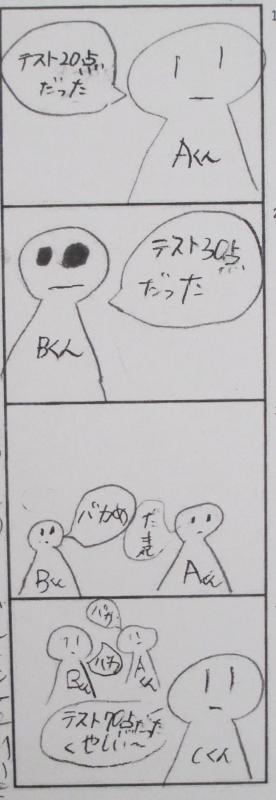 テスト20点
だった
Aくん
テスト30点
だった
Bくん
バカめ
だまれ
Bくん
Aくん
バカ
バカ
Bくん
Aくん
テスト70点だった
くやしい〜
Cくん